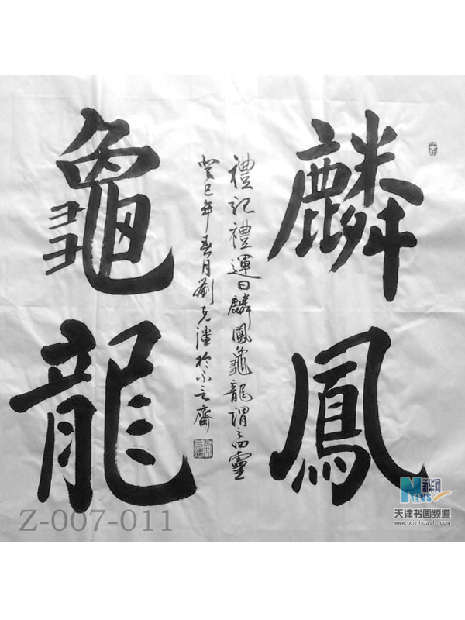 麟鳳
龜龍
禮記禮運曰麟鳳龜龍謂之四靈
癸巳年春月劉克潘於不言齋
Z-007-011
NEWS
天津书画频道